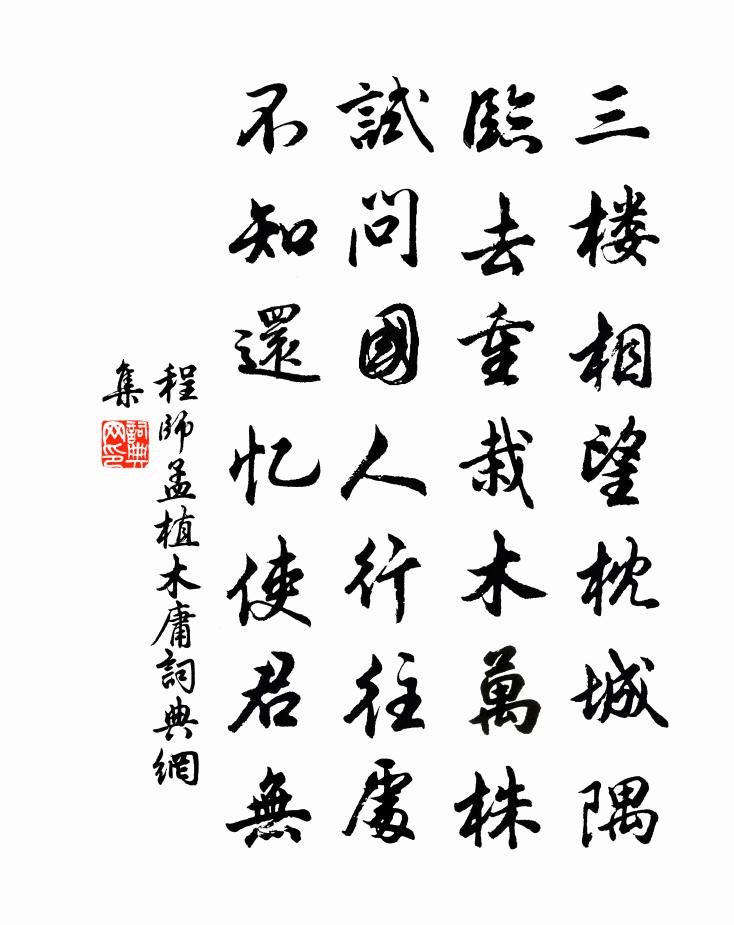 三楼相望枕城隅
臨去重栽木萬株
試問國人行往處
不知還忆使君無
程師孟植木庸詞典網
集
詞典
网印